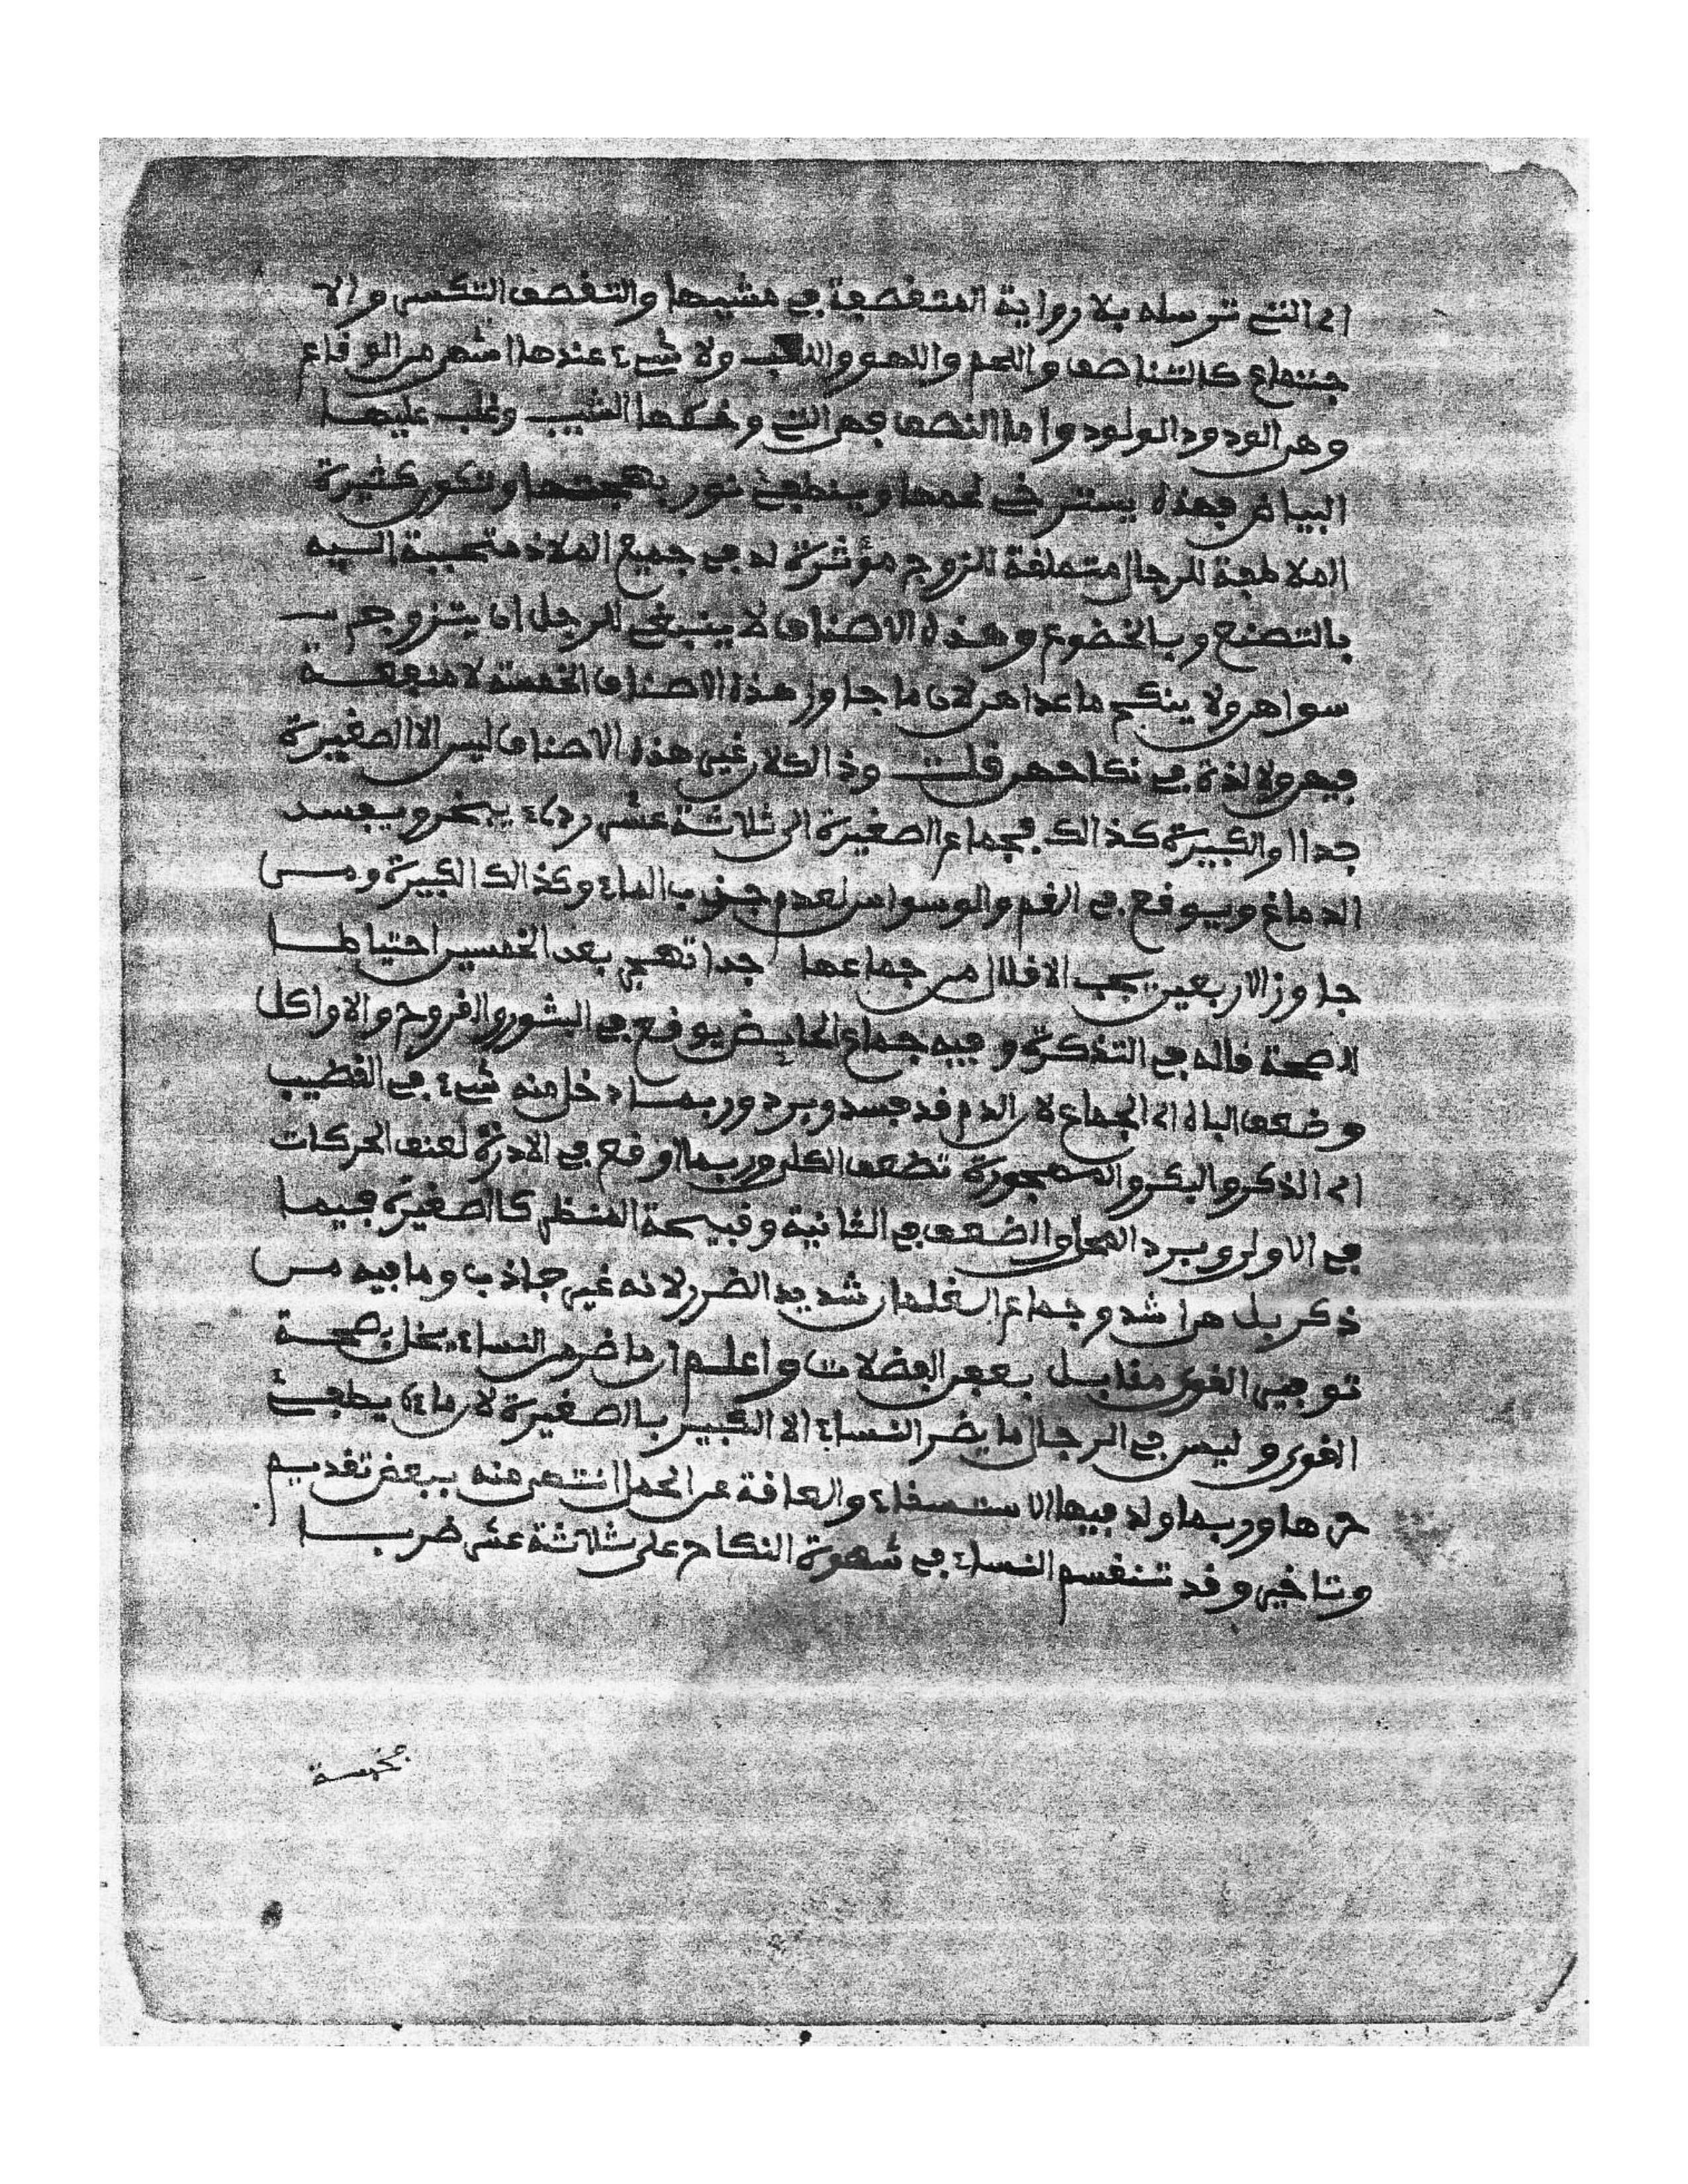 اي التي ترسله بلا رواية المتقصفة في مشيها والتقصف التكسر والا
جتماع كالتناصف واللحم واللهو واللعب ولا شيء عندها اشهى من الوقاع
وهي الودود الولود واما النصف فهي التي وخطها الشيب وغلب عليها
البياض فهذه يسترخي لحمها وينطفئ نور بهجتها وتكون كثيرة
الملاطفة للرجال متملقة للزوج مؤثرة له في جميع الملاذ متحببة اليه
بالتصنع وبالخضوع وهذه الاصناف لا ينبغي للرجل ان يتزوج
سواهن ولا ينكح ما عداهن لان ما جاوز هذه الاصناف الخمسة لا منفعة
فيهن ولا لذة في نكاحهن قلت وذالك لان غير هذه الاصناف ليس الا الصغيرة
جدا او الكبيرة كذالك فجماع الصغيرة الى ثلاثة عشر رديء يبخر ويفسد
الدماغ ويوقع في الغم والوسواس لعدم جذب الماء وكذالك الكبيرة ومن
جاوز الاربعين يجب الاقلال من جماعها جدا تهجر بعد الخمسين احتياطا
للصحة قاله في التذكرة وفيه جماع الحايض يوقع في البثور والقروح والاواكل
وضعف الباه اي الجماع لان الدم قد فسد وبرد وربما دخل منه شيء في القضيب
اي الذكر والبكر والمهجورة تضعف الكلى وربما اوقع في الادرة لعنف الحركات
في الاولى وبرد المحل والضعف في الثانية وقبيحة المنظر كالصغيرة فيما
ذكر بل هي اشد وجماع الغلمان شديد الضرر لانه غير جاذب وما فيه من
توفير القوى مقابل بعجن الفضلات واعلم ان ما ضر من النساء يخل بصحة
القوى وليس في الرجال ما يضر النساء الا الكبير بالصغيرة لان ماءه يطفئ
حرها وربما ولد فيها الاستسقاء والعاقة عن الحمل انتهى منه ببعض تقديم
وتاخير وقد تنقسم النساء في شهوة النكاح على ثلاثة عشر ضربا
فخمسة